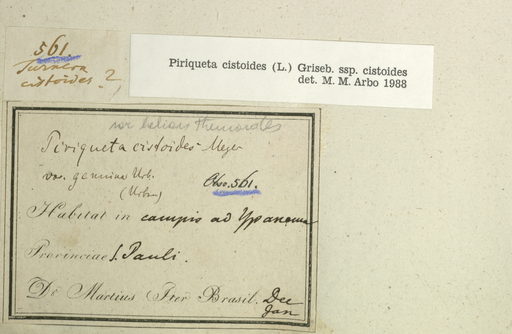 561.
Turnera
cistoides ?
Piriqueta cistoides (L.) Griseb. ssp. cistoides
det. M. M. Arbo 1988
var helianthemoides
Piriqueta cistoides Meyer
var. genuina Urb.
(Urban)
Obs. 561.
Habitat in campis ad Ypanema
Provinciae S. Pauli.
Dr Martius Iter Brasil. Dec
Jan